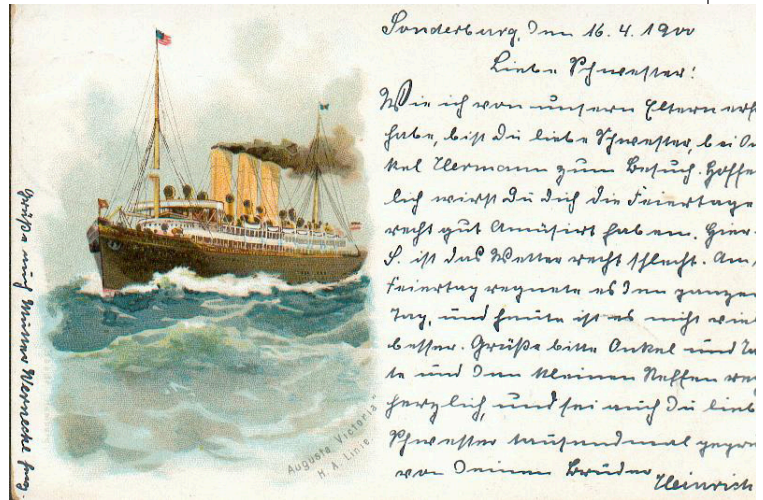 Sonderburg, den 16. 4. 1900
Liebe Schwester!
Wie ich von unsern Eltern erf
habe, bist Du liebe Schwester, bei On
kel Hermann zum Besuch. Hoffe
lich wirst Du Dich die Feiertage
recht gut Amüsirt haben. Hier
S. ist das Wetter recht schlecht. Am
Feiertag regnete es den ganzen
Tag, und heute ist es nicht viel
besser. Grüße bitte Onkel und Ta
te und den kleinen Neffen rec
herzlich, und sei auch Du lieb
Schwester tausendmal gegrü
von Deinem Bruder Heinrich
Grüße auch Minna Wernecke
Auguste Victoria"
H. A. Linie